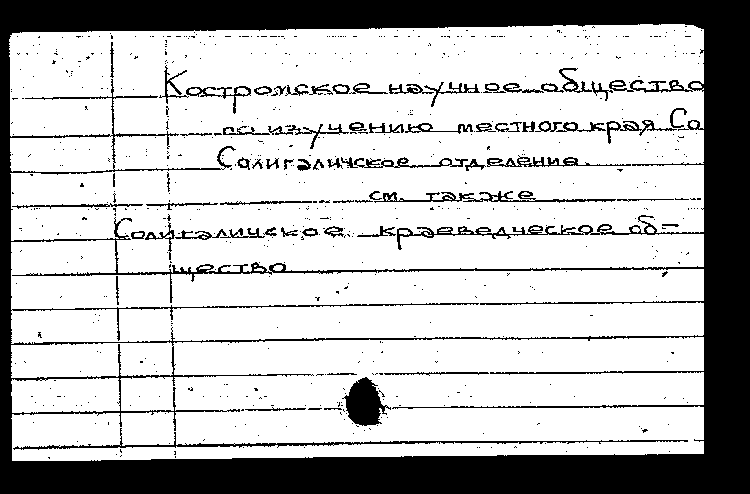 Костромское научное общество
по изучению местного края Со
Солигаличское отделение.
см. также
Солигаличское краеведческое об-
щество